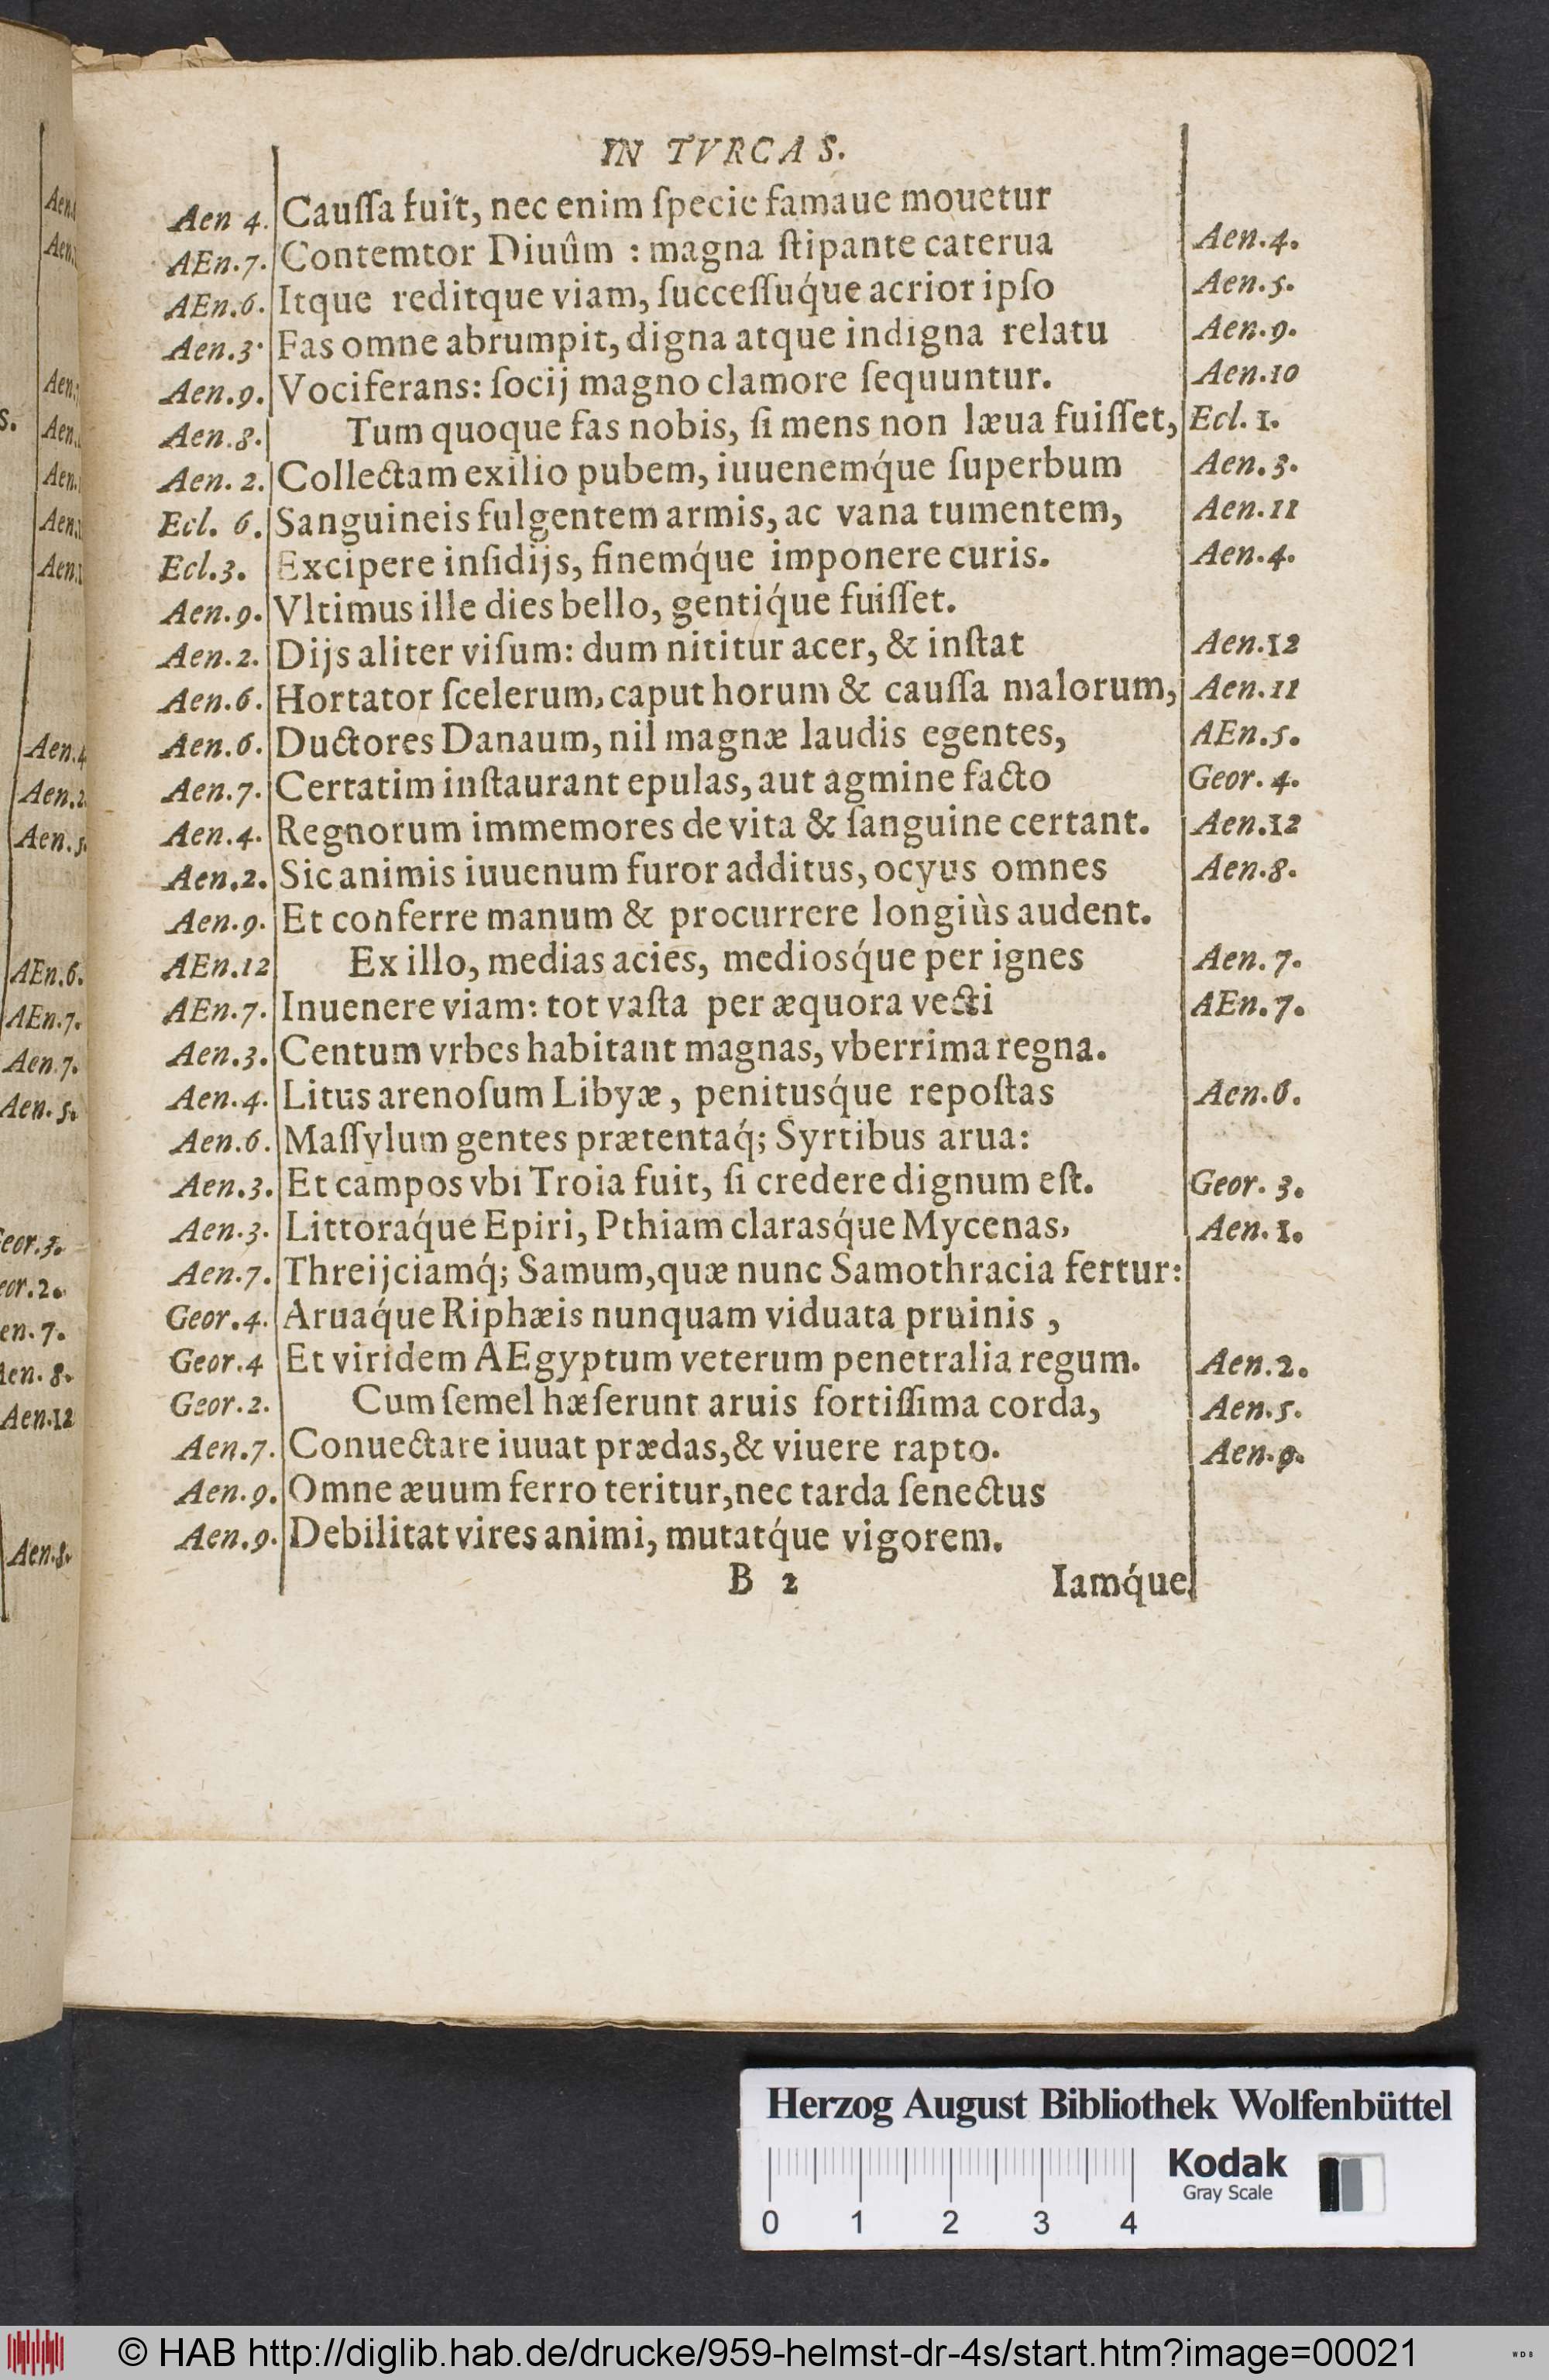 IN TVRCAS.
Aen 4. Cauſſa fuit, nec enim ſpecie famaue mouetur
AEn.7. Contemtor Diuûm : magna ſtipante caterua Aen.4.
AEn.6. Itque reditque viam, ſucceſſuq́ue acrior ipſo Aen.5.
Aen.3. Fas omne abrumpit, digna atque indigna relatu Aen.9.
Aen.9. Vociferans: ſocij magno clamore ſequuntur. Aen.10
Aen.8. Tum quoque fas nobis, ſi mens non læua fuiſſet, Ecl. 1.
Aen. 2. Collectam exilio pubem, iuuenemq́ue ſuperbum Aen.3.
Ecl. 6. Sanguineis fulgentem armis, ac vana tumentem, Aen.11
Ecl.3. Excipere inſidijs, finemq́ue imponere curis. Aen.4.
Aen.9. Vltimus ille dies bello, gentiq́ue fuiſſet.
Aen.2. Dijs aliter viſum: dum nititur acer, & inſtat Aen.12
Aen.6. Hortator ſcelerum, caput horum & cauſſa malorum, Aen.11
Aen.6. Ductores Danaum, nil magnæ laudis egentes, AEn.5.
Aen.7. Certatim inſtaurant epulas, aut agmine facto Geor. 4.
Aen.4. Regnorum immemores de vita & ſanguine certant. Aen.12
Aen.2. Sic animis iuuenum furor additus, ocyus omnes Aen.8.
Aen.9. Et conferre manum & procurrere longiùs audent.
AEn.12 Ex illo, medias acies, mediosq́ue per ignes Aen. 7.
AEn.7. Inuenere viam: tot vaſta per æquora vecti AEn. 7.
Aen.3. Centum vrbes habitant magnas, vberrima regna.
Aen.4. Litus arenoſum Libyæ, penitusq́ue repoſtas Aen.6.
Aen.6. Maſſylum gentes prætentaq́; Syrtibus arua:
Aen.3. Et campos vbi Troia fuit, ſi credere dignum eſt. Geor. 3.
Aen.3. Littoraq́ue Epiri, Pthiam clarasq́ue Mycenas, Aen. 1.
Aen.7. Threijciamq́; Samum, quæ nunc Samothracia fertur:
Geor.4. Aruaq́ue Riphæis nunquam viduata pruinis,
Geor.4 Et viridem AEgyptum veterum penetralia regum. Aen.2.
Geor.2. Cum ſemel hæſerunt aruis fortiſſima corda, Aen.5.
Aen.7. Conuectare iuuat prædas, & viuere rapto. Aen.9.
Aen.9. Omne æuum ferro teritur, nec tarda ſenectus
Aen.9. Debilitat vires animi, mutatq́ue vigorem.
B 2 Iamq́ue
Herzog August Bibliothek Wolfenbüttel
Kodak
Gray Scale
0 1 2 3 4
© HAB http://diglib.hab.de/drucke/959-helmst-dr-4s/start.htm?image=00021